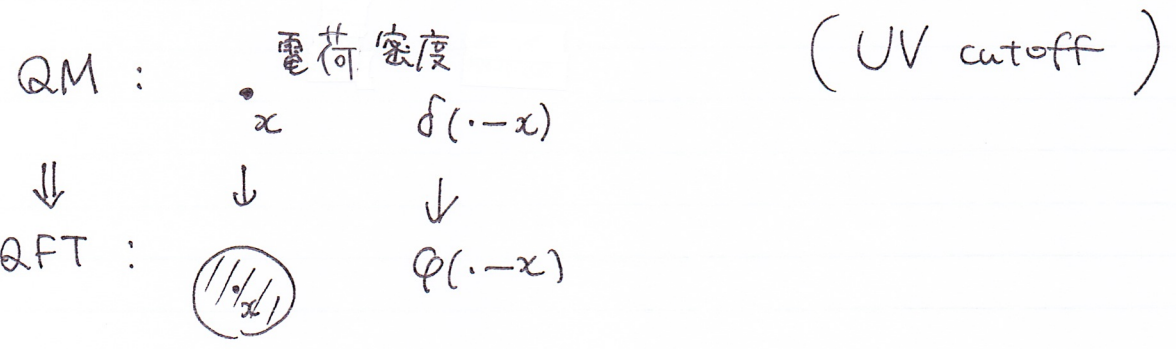 電荷密度 (UV cutoff)
QM : ・x δ(・-x)
⇓ ↓ ↓
QFT : ・x φ(・-x)